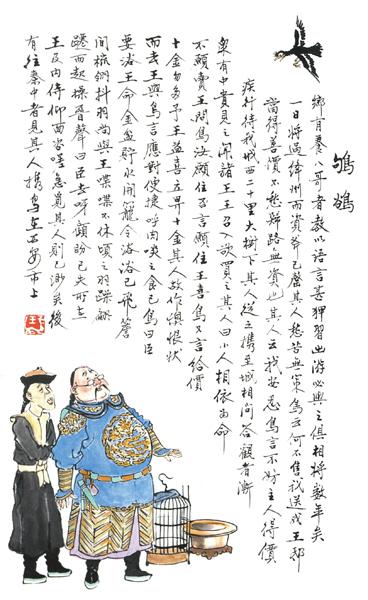 鴝鵒
鄉有養八哥者教以語言甚狎習出游必與之俱相將數年矣
一日將過絳州而資斧已罄其人愁苦無策鳥云何不售我送我王邸
當得善價不愁歸路無資也其人云我安忍鳥言不妨主人得價
疾行待我城西二十里大樹下其人從之攜至城相問答觀者漸
衆有中貴見之聞諸王王召入欲買之其人曰小人相依為命
不願賣王問鳥汝願住否言願住王喜鳥又言給價
十金勿多予王益喜立畀十金其人故作懊恨狀
而去王與鳥言應對便捷呼肉啖之食已鳥曰臣
要浴王命金盆貯水開籠令浴浴已飛簷
間梳翎抖羽尚與王喋喋不休頃之羽燥翩
躚而起操晉聲曰臣去呀顧盼已失所在
王及內侍仰面咨嗟急覓其人則已渺矣後
有往秦中者見其人攜鳥在西安市上